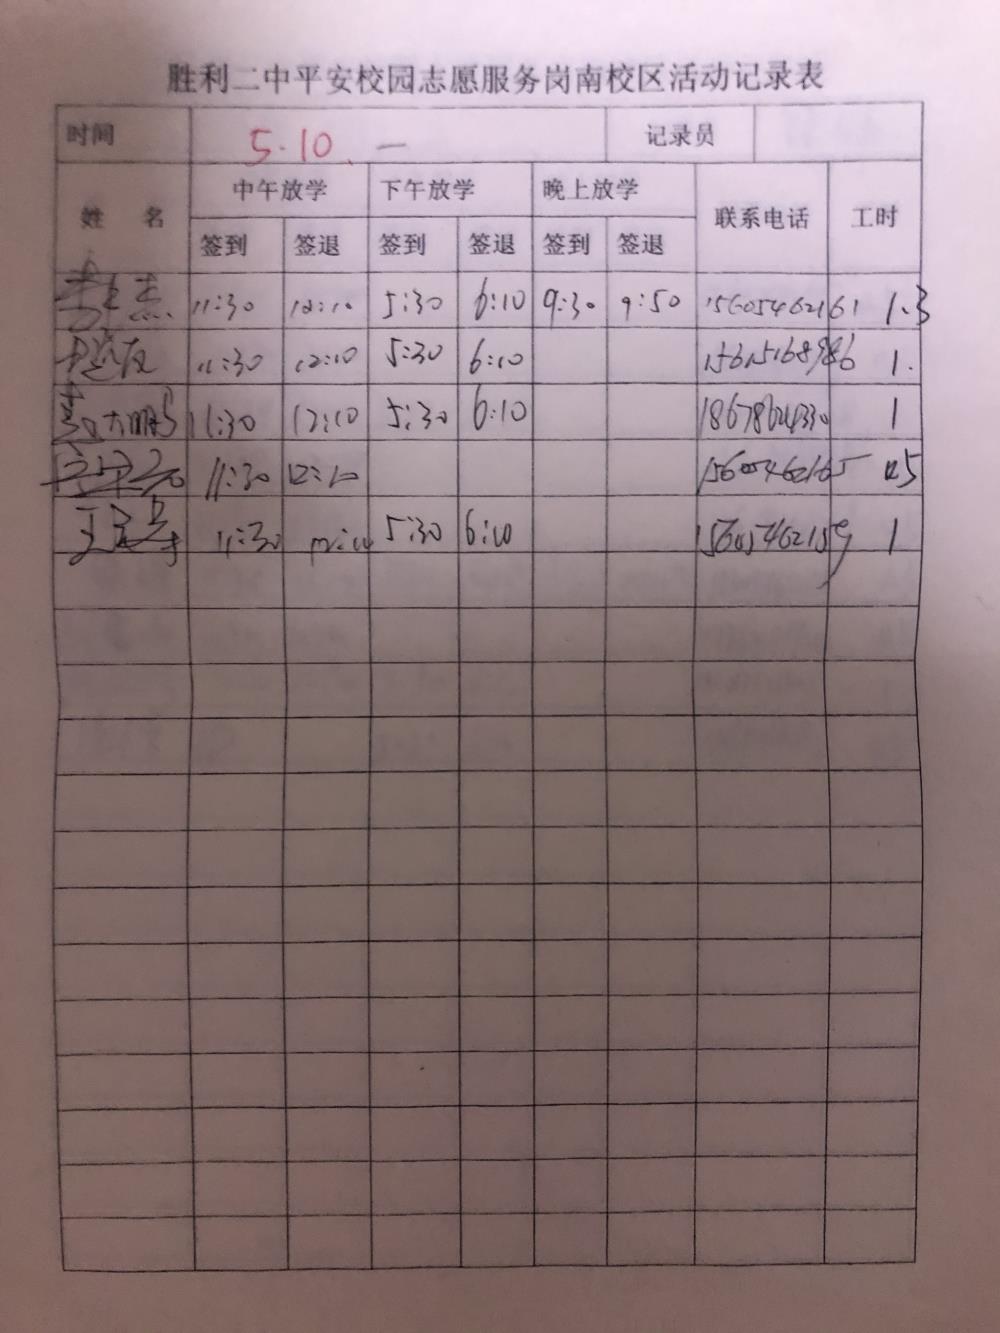 胜利二中平安校园志愿服务岗南校区活动记录表
时间 5.10. 一 记录员
姓 名 中午放学 下午放学 晚上放学 联系电话 工时
签到 签退 签到 签退 签到 签退
11:30 12:10 5:30 6:10 9:30 9:50 15605462161 1.3
11:30 12:10 5:30 6:10 15615168986 1.
11:30 12:10 5:30 6:10 1
11:30 12:10 15605462165
11:30 5:30 6:10 15605462159 1